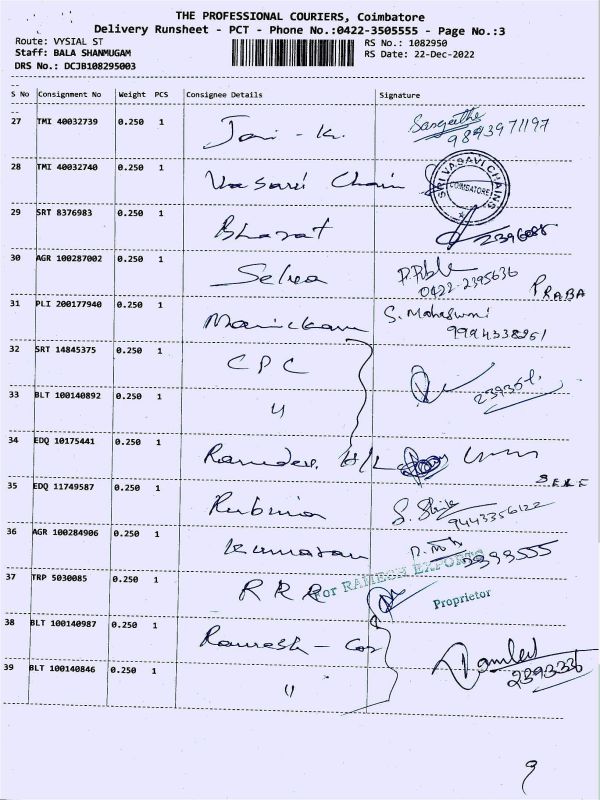 THE PROFESSIONAL COURIERS, Coimbatore
Delivery Runsheet - PCT - Phone No.:0422-3505555 - Page No.:3
Route: VYSIAL ST
RS No.: 1082950
Staff: BALA SHANMUGAM
RS Date: 22-Dec-2022
DRS No.: DCJB108295003
S No Consignment No Weight PCS Consignee Details Signature
27 TMI 40032739 0.250 1 Jai - K. Sangeetha
9843971197
28 TMI 40032740 0.250 1 Vasavi Chain SRI VASAVI CHAINS COIMBATORE
29 SRT 8376983 0.250 1 Bharat
30 AGR 100287002 0.250 1 Selva
0422-2395636
PRABA
31 PLI 200177940 0.250 1 Manickam S. Maheswari
9994338261
32 SRT 14845375 0.250 1 CPC
33 BLT 100140892 0.250 1 "
34 EDQ 10175441 0.250 1 Ramdev. H/L
SELF
35 EDQ 11749587 0.250 1 Rubinia
9443356122
36 AGR 100284906 0.250 1 Kumaran
2393555
37 TRP 5030085 0.250 1 RRR
For RAMESH EXPORTS
Proprietor
38 BLT 100140987 0.250 1 Ramesh - Cos
39 BLT 100140846 0.250 1 "
2393336
9